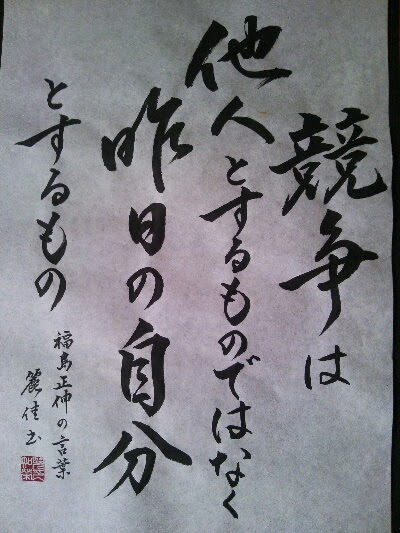 競争は
他人とするものではなく
昨日の自分
とするもの
福島正伸の言葉
麗佳書